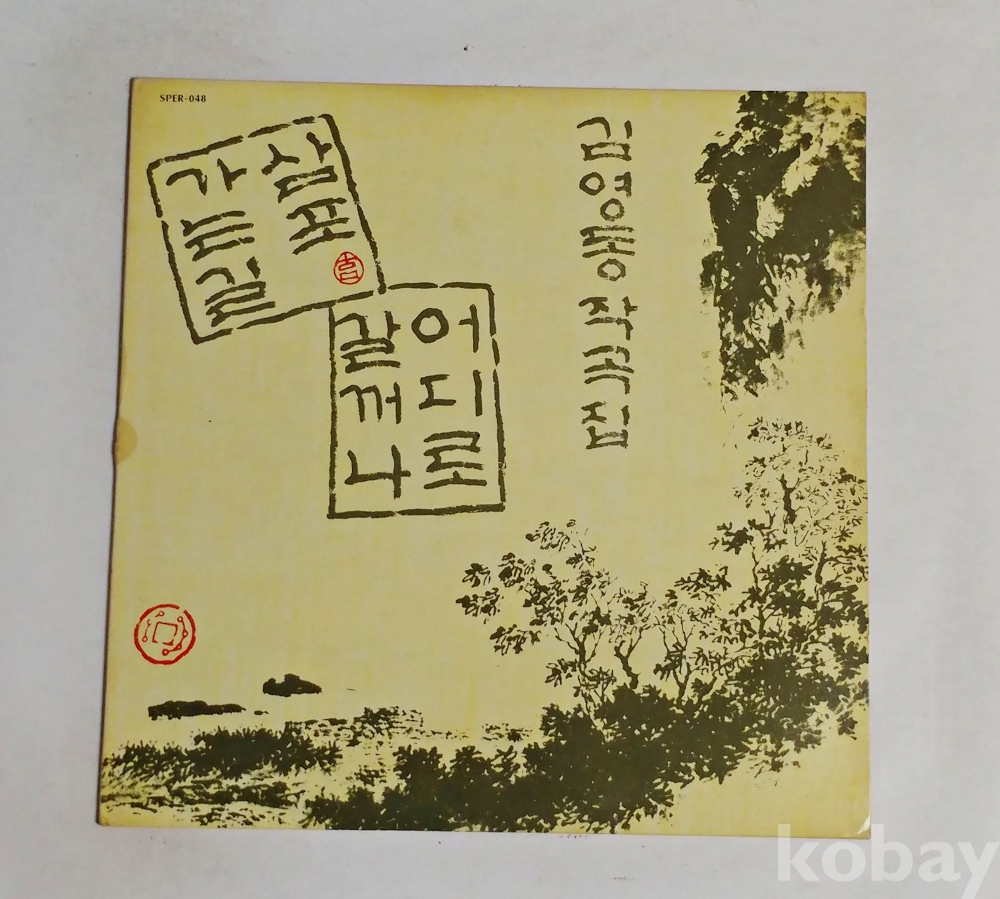 SPER-048
김영동작곡집
삼포
가는길
어디로
갈꺼나
kobay